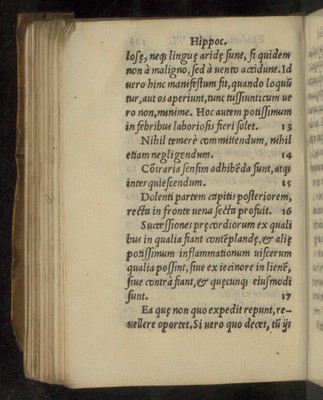 Hippoc.
losę, neq; linguę aridę sunt, si quidem
non à maligno, sed à uento accidunt. Id
uero hinc manifestum fit, quando loquũ
tur, aut os aperiunt, tunc tussiunt: cum ue
ro non, minime. Hoc autem potissimum
in febribus laboriosis fieri solet. 13
Nihil temerè committendum, nihil
etiam negligendum. 14
Cõtraria sensim adhibẽda sunt, atq;
interquiescendum. 15
Dolenti partem capitis posteriorem,
recta in fronte uena secta profuit. 16
Successiones pręcordiorum ex quali
bus in qualia fiant contẽplandę, & alię
potissimum inflammationum uiscerum
qualia possint, siue ex iecinore in lienẽ,
siue contrà fiant, & quęcunq; eiusmodi
sunt. 17
Ea quę non quo expedit repunt, re-
uellere oportet. Si uero quo decet, tũ ijs